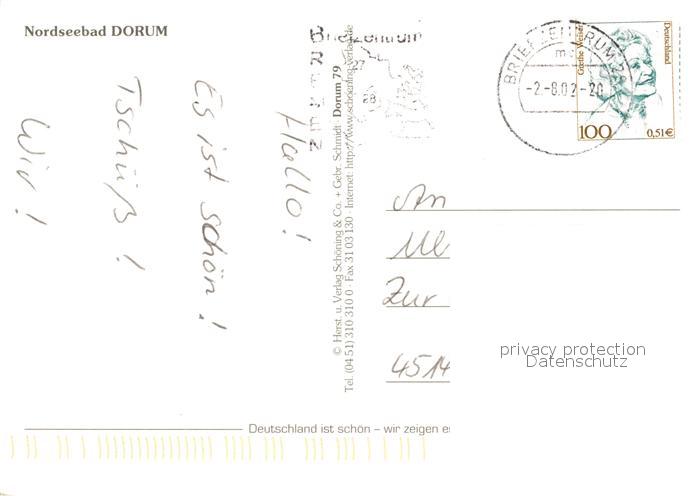 Nordseebad DORUM
Hallo!
Es ist schön!
Tschüß!
Wir!
© Herst. u. Verlag Schöning & Co. + Gebr. Schmidt · Dorum 79
Tel. (04 51) 310 310 0 · Fax 31 03 130 · Internet: http://www.schoening-verlag.de
Briefzentrum
27
28
BRIEFZENTRUM 28
-2.-8.02.-20
Grethe Weiser
Deutschland
100 0,51€
An
Zur
4514
privacy protection
Datenschutz
Deutschland ist schön – wir zeigen es